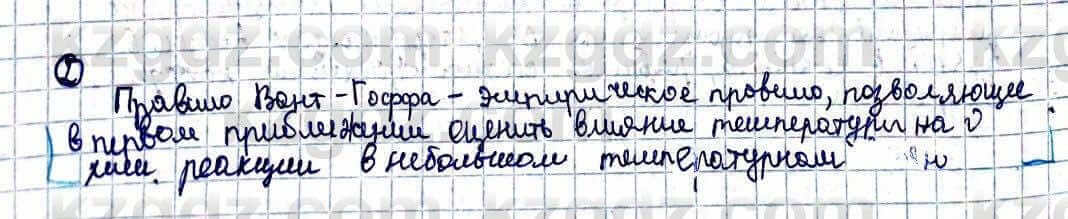 kzgdz.com
2
Правило Вант-Гоффа – эмпирическое правило, позволяющее
в первом приближении оценить влияние температуры на υ
хим. реакции в небольшом температурном